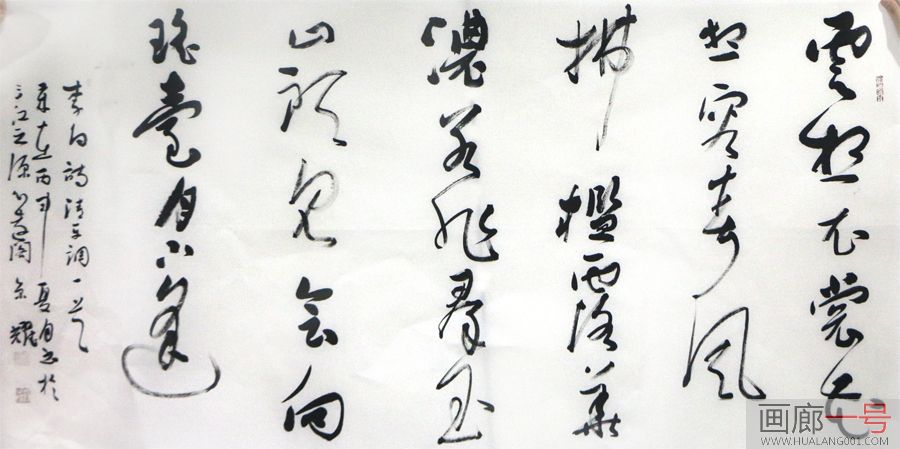 雲想衣裳花
想容春風
拂檻露華
濃若非羣玉
山頭見會向
瑤臺月下逢
李白詩清平調一首
歲在丙申夏月書於
三江之源 閣 耀
画廊一号
WWW.HUALANG001.COM